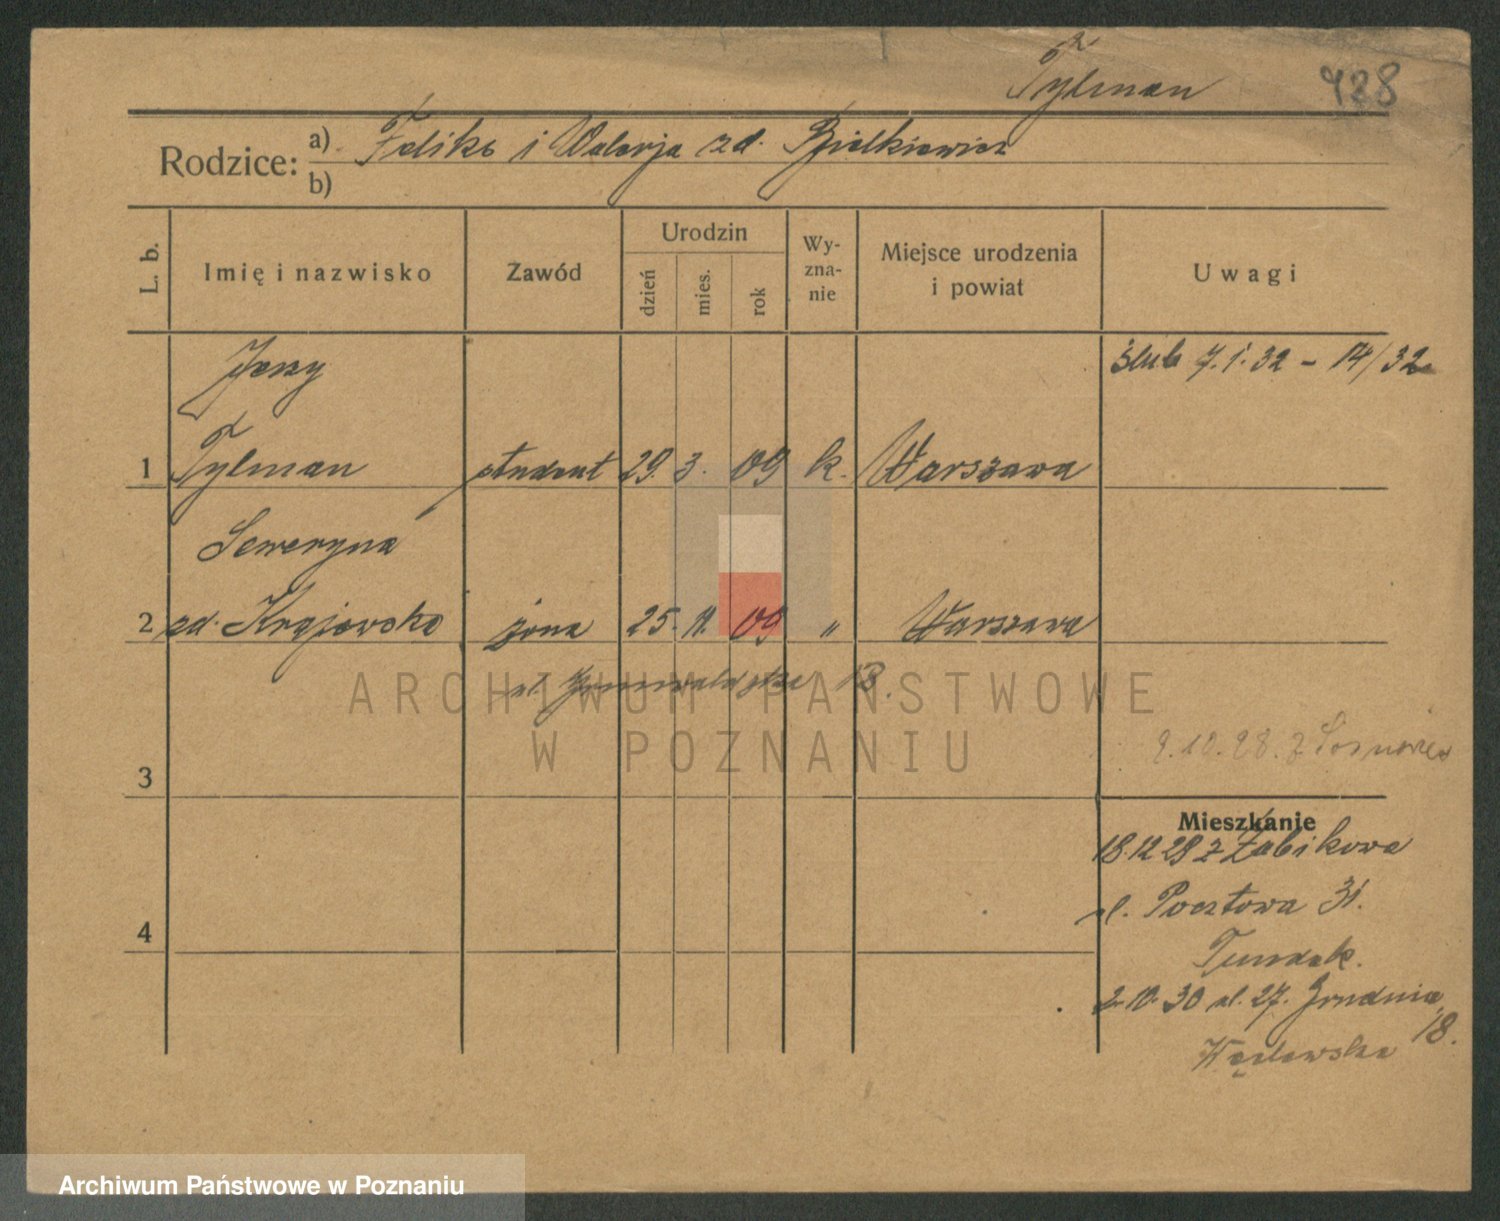 Tylman 928
Rodzice: a) Feliks i Walerja zd. Bielkiewicz
b)
L. b. Imię i nazwisko Zawód Urodzin dzień mies. rok Wy-zna-nie Miejsce urodzenia i powiat Uwagi
Jerzy ślub 7.1.32 – 14/32
1 Tylman student 29. 3. 09 k. Warszawa
Seweryna
2 zd. Krajewska żona 25. 11. 09 " Warszawa
ul. Grunwaldzka 13.
9.10.28. z Sosnowca
3
Mieszkanie
18.12 28 z Żabikowa
ul. Pocztowa 31.
4
2.10.30 ul. 27. Grudnia 18.
ARCHIWUM PAŃSTWOWE
W POZNANIU
Archiwum Państwowe w Poznaniu